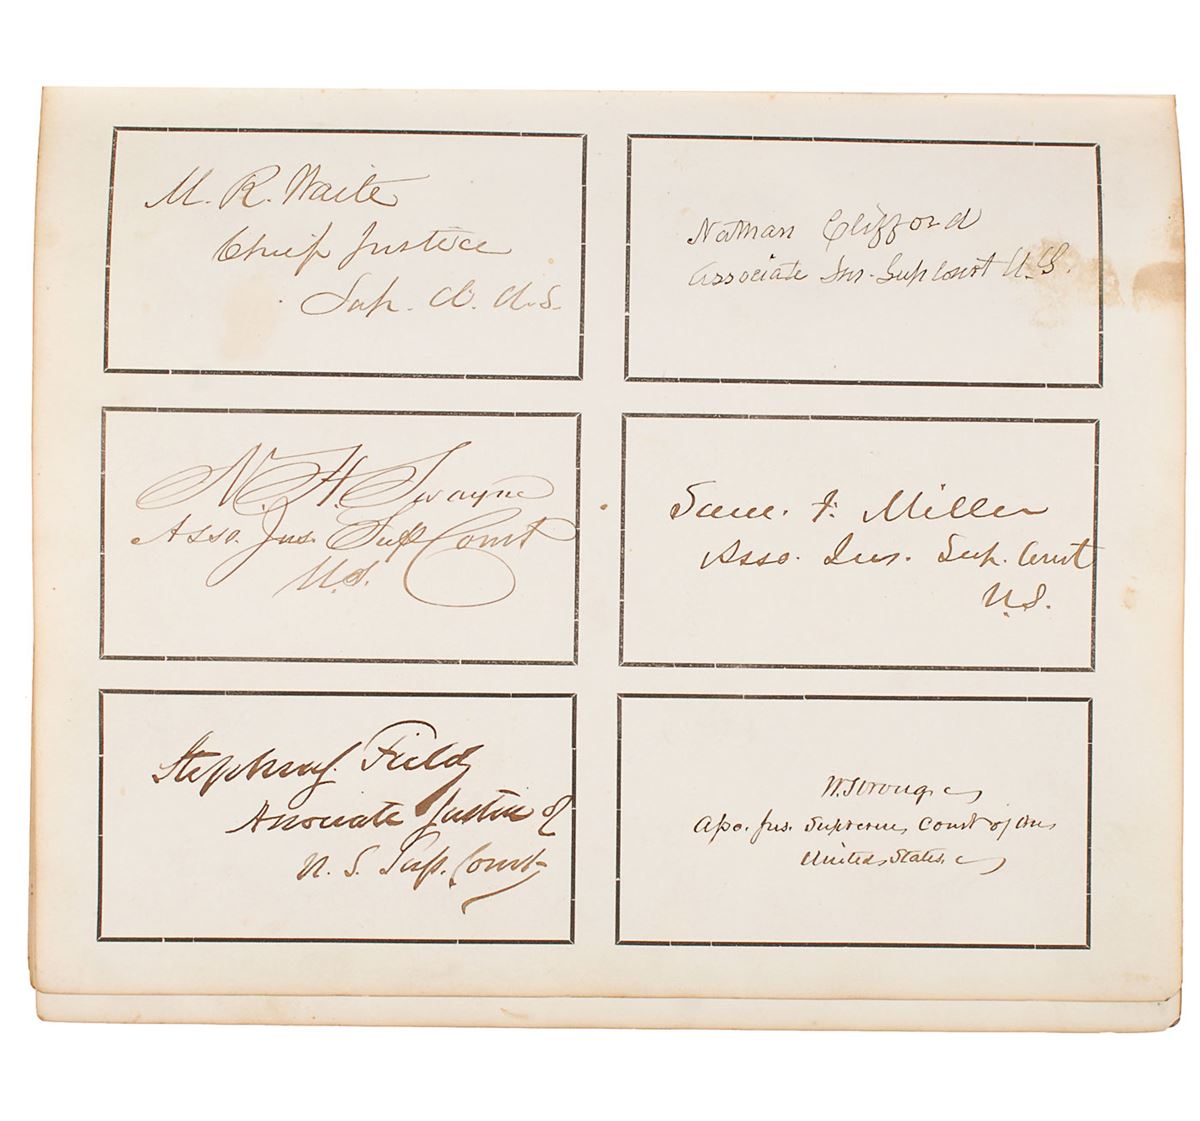 M. R. Waite
Chief Justice
Sup. Ct. U.S.
Nathan Clifford
Associate Jus. Sup Court U.S.
N. H. Swayne
Asso. Jus. Sup Court
U.S.
Sam. F. Miller
Asso. Jus. Sup. Court
U.S.
Stephen J. Field
Associate Justice of
U. S. Sup. Court
W. Strong
Asso. Jus. Supreme Court of the
United States.